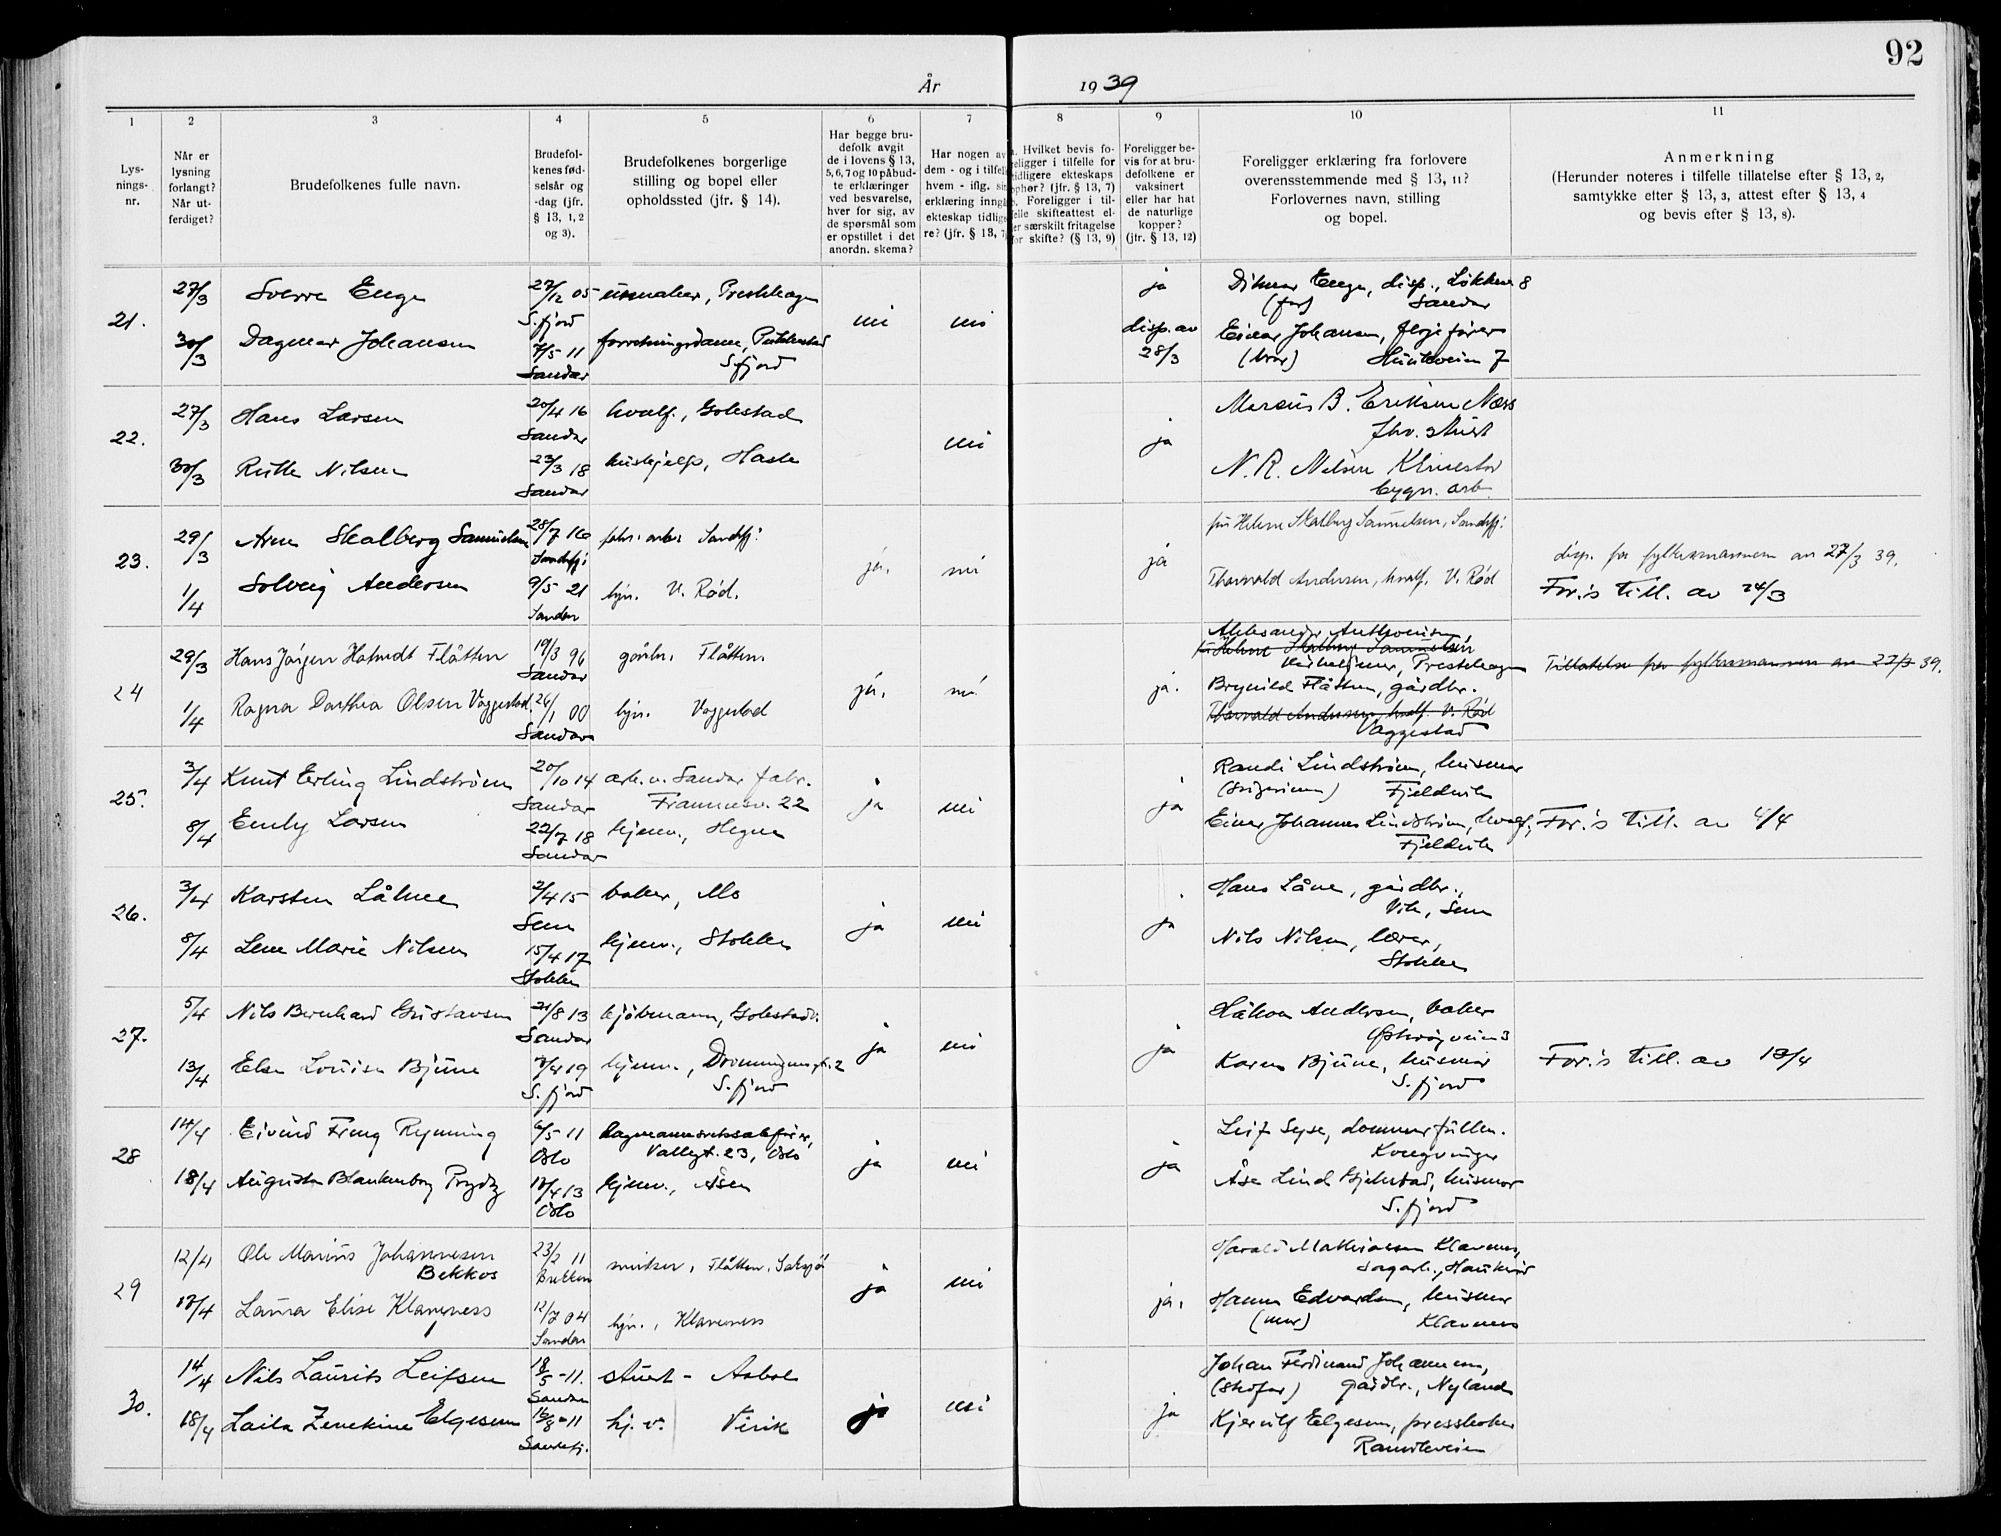 92
År 1939
1
2
3
4
5
6
7
8
9
10
11
Lys-
nings-
nr.
Når er
lysning
forlangt?
Når ut-
ferdiget?
Brudefolkenes fulle navn.
Brudefol-
kenes fød-
selsår og
-dag (jfr.
§ 13, 1, 2
og 3).
Brudefolkenes borgerlige
stilling og bopel eller
opholdssted (jfr. § 14).
Har begge bru-
defolk avgit
de i lovens § 13,
5, 6, 7 og 10 påbud-
te erklæringer
ved besvarelse,
hver for sig, av
de spørsmål som
er opstillet i det
anordn. skema?
Har nogen av
dem - og i tilfelle
hvem - iflg. sin
erklæring inngå
ekteskap tidlige
re? (jfr. § 13, 7
Hvilket bevis fo-
religger i tilfelle for
tidligere ekteskaps
ophør? (jfr. § 13, 7)
Foreligger i til-
felle skifteattest el-
er særskilt fritagelse
for skifte? (§ 13, 9)
Foreligger be-
vis for at bru-
defolkene er
vaksinert
eller har hat
de naturlige
kopper?
(jfr. § 13, 12)
Foreligger erklæring fra forlovere
overensstemmende med § 13, 11?
Forlovernes navn, stilling
og bopel.
Anmerkning
(Herunder noteres i tilfelle tillatelse efter § 13, 2,
samtykke efter § 13, 3, attest efter § 13, 4
og bevis efter § 13, 8).
21.
27/3 Sverre Enge 27/12 05
S.fjord
30/3 Dagmar Johansen 7/5 11 forretningsdame,
Sandar S.fjord
nei nei
ja
disp. av
28/3
Enge, disp., Løkken 8
(far) Sandar
Einar Johansen,
(bror)
22.
27/3 Hans Larsen 20/4 16 hvalf., Golestad
Sandar
30/3 Ruth Nilsen 23/3 18 hushjelp, Hasle
Sandar
nei ja
Marius B. Eriksen Næss
fhv. stuert
N. R. Nilsen
bygn. arb.
23.
29/3 Arne Skalberg Samuelsen 28/7 16 fabr. arb. Sandefj.
Sandefj.
1/4 Solveig Andersen 9/5 21 hjv. V. Rød.
Sandar
ja. nei ja
fru Helene Skalberg Samuelsen, Sandefj.
Thorvald Andersen, hvalf. V. Rød
disp. fra fylkesmannen av 27/3 39.
For.s till. av 24/3
24
29/3 Hans Jørgen Flåtten 19/3 96 gårdbr. Flåtten.
Sandar
1/4 Ragna Dorthea Olsen Vaggestad. 26/1 00 hjv. Vaggestad
Sandar
ja. nei ja.
Aleksander Anthonisen,
fru Helene Skalberg Samuelsen
Prestehagen
Brynild Flåtten, gårdbr.
Thorvald Andersen, hvalf. V. Rød
Vaggestad
Tillatelse fra fylkesmannen av 27/3 39.
25.
3/4 Knut Erling Lindstrøm 20/10 14 arb. v. Sandar fabr.
Sandar Framnesv. 22
8/4 Emly Larsen 22/7 18 hjemv., Hegna
Sandar
ja nei ja
Randi Lindstrøm, husmor
(svigerinne) Fjeldvik
Einar Johannes Lindstrøm, hvalf.,
Fjeldvik
For.s till. av 4/4
26.
3/4 Karsten Låhne 2/4 15 baker, Mo
Sem
8/4 Lene Marie Nilsen 15/4 17 hjemv., Stokke
Stokke
ja nei ja
Hans Låne, gårdbr.,
Vik, Sem
Nils Nilsen, lærer,
Stokke
27.
5/4 Nils Bernhard Gustavsen 21/8 13 kjøbmann, Golestadv.
Sandar
13/4 Else Louise Bjune 7/4 19 hjemv., Dronningensgt. 2
S.fjord S.fjord
ja nei ja
Håkon Andersen, baker
Karen Bjune, husmor
S.fjord
For.s till. av 13/4
28
14/4 Eivind Freng Rynning 6/5 11 lagmannsrettssakfører,
Oslo Vallegt. 23, Oslo
18/4 Augusta Blankenborg Prydz 17/4 13 hjemv., Åsen
Oslo
ja nei ja
Leif Seye, dommerfullm.
Kongsvinger
Åse Lind Gjelstad, husmor
S.fjord
29
12/4 Ole Marius Johannesen 23/2 11 snekker, Flåtten,
Bekkos
17/4 Laura Elise Klavness 12/7 04 hjv., Klavenes
Sandar
ja nei ja.
Harald Mathiassen Klavnes,
Hanna Edvardsen, husmor
(mor) Klavenes
30.
14/4 Nils Laurits Leifsen 18/5 -11. stuert -
Sandar
18/4 Laila Zenekine Elgesem 16/8 -11 hj. v. Virik
Sandefj.
ja nei ja
Johan Ferdinand Johannesen,
(stefar) gårdbr., Nyland
Kjerulf Elgesem, presshoker
Ranvikveien